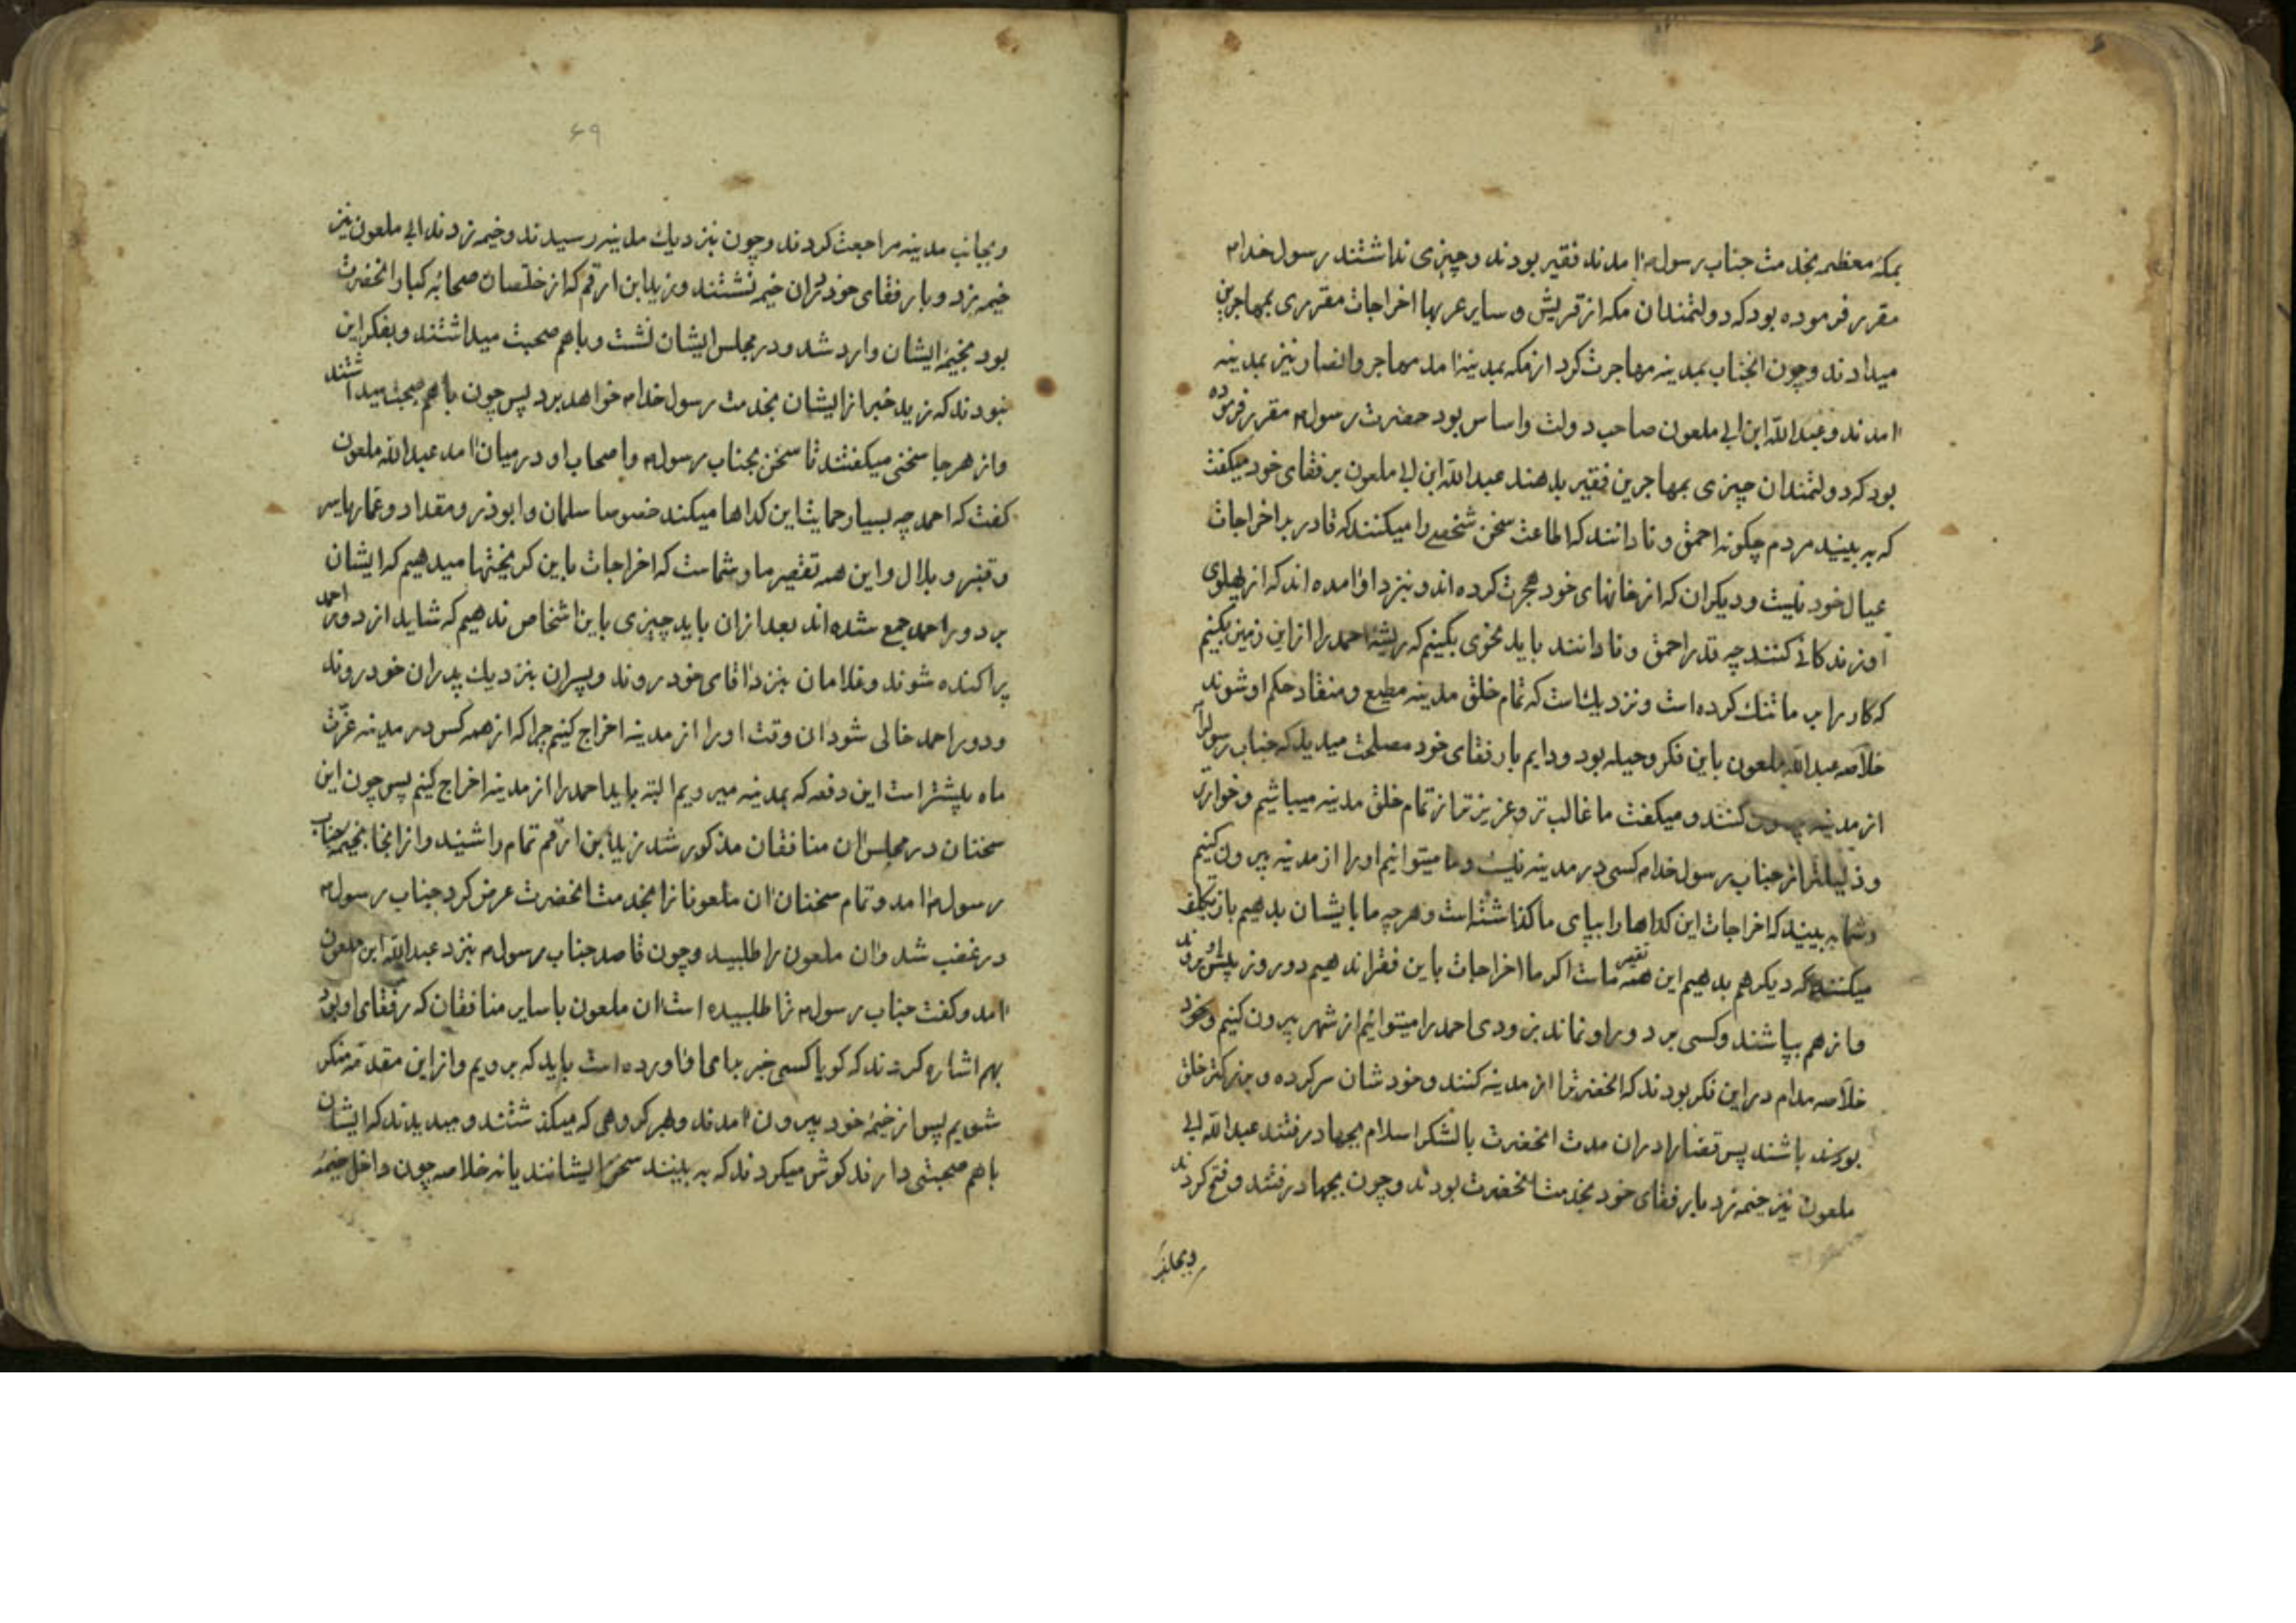 بمکه معظمه بخدمت جناب رسول م امدند فقیر بودند و چیزی نداشتند رسول خدا م
مقرر فرموده بود که دولتمندان مکه از قریش و سایر عربها اخراجات مقرری بمهاجرین
میدادند و چون انجناب بمدینه مهاجرت کرد از مکه بمدینه امد مهاجر و انصار نیز بمدینه
امدند و عبدالله ابن ابی ملعون صاحب دولت و اساس بود حضرت رسول م مقرر فرموده
بود که دولتمندان چیزی بمهاجرین فقیر بدهند عبدالله ابن ابی ملعون برفقای خود میکفت
که به بینید مردم چکونه احمق و نادانند که اطاعت سخن شخصی را میکنند که قادر بر اخراجات
عیال خود نیست و دیکران که از خانهای خود هجرت کرده اند و بنزد او امده اند که از پهلوی
او زندکانی کنند چه قدر احمق و نادانند باید نحوی بکنیم که ریشه احمد را از این زمین بکنیم
که کار را بما تنک کرده است و نزدیک است که تمام خلق مدینه مطیع و منقاد حکم او شوند
خلاصه عبدالله ملعون باین فکر و حیله بود و دایم با رفقای خود مصلحت میدید که جناب رسول را
از مدینه بیرون کنند و میکفت ما غالب تر و عزیز تر از تمام خلق مدینه میباشیم و خوارتر
و ذلیلتر از جناب رسول خدا م کسی در مدینه نیست و ما میتوانیم او را از مدینه بیرون کنیم
و شما به بینید که اخراجات این کداها را بپای ما کذاشته است و هر چه ما بایشان بدهیم باز تکلیف
میکنند که دیکر هم بدهیم این همه تقصیر ماست اکر ما اخراجات باین فقرا ندهیم دو روز پیش او نروند
و از هم بپاشند و کسی بر دور او نماند بزودی احمد را میتوانیم از شهر بیرون کنیم
خلاصه مدام در این فکر بودند که انحضرترا از مدینه کنند و خودشان سرکرده و بزرکتر خلق
بوده باشند پس قضارا دران مدت انحضرت با لشکر اسلام بجهاد رفتند عبدالله ابی
ملعون نیز خیمه زد با رفقای خود بخدمت انحضرت بودند و چون بجهاد رفتند و فتح کردند
و بجانب
۶۹
و بجانب مدینه مراجعت کردند و چون بنزدیک مدینه رسیدند و خیمه زدند ابی ملعون نیز
خیمه زد و با رفقای خود دران خیمه نشتند و زید ابن ارقم که از خلّصان صحابهٔ کبار انحضرت
بود بخیمهٔ ایشان وارد شد و در مجلس ایشان نشت و باهم صحبت میداشتند و بفکر این
نبودند که زید خبر از ایشان بخدمت رسول خدا م خواهد برد پس چون باهم صحبت میداشتند
و از هر جا سخنی میکفتند تا سخن بجناب رسول م و اصحاب او در میان امد عبدالله ملعون
کفت که احمد چه بسیار حمایت این کداها میکند خصوصا سلمان و ابوذر و مقداد و عمار یاسر
و قنبر و بلال و این همه تقصیر ما و شماست که اخراجات باین کریختها میدهیم که ایشان
بر دور احمد جمع شده اند بعد از ان باید چیزی باین اشخاص ندهیم که شاید از دور احمد
پراکنده شوند و غلامان بنزد اقای خود روند و پسران بنزدیک پدران خود روند
و دور احمد خالی شود ان وقت او را از مدینه اخراج کنیم چرا که از همه کس در مدینه عزّت
ماه بیشتر است این دفعه که بمدینه میرویم البته باید احمد را از مدینه اخراج کنیم پس چون این
سخنان در مجلس ان منافقان مذکور شد زید ابن ارقم تمام را شنید و از انجا بخیمه جناب
رسول م امد و تمام سخنان ان ملعونانرا بخدمت انحضرت عرض کرد جناب رسول م
در غضب شد و ان ملعون را طلبید و چون قاصد جناب رسول م بنزد عبدالله ابن ملعون
امد و کفت جناب رسول م ترا طلبیده است ان ملعون با سایر منافقان که رفقای او بود
بهم اشاره کردند که کویا کسی خبر بجای اورده است باید که برویم و از این مقدّمه منکر
شویم پس از خیمهٔ خود بیرون امدند و هر کروهی که میکذشتند و میدیدند که ایشان
باهم صحبتی دارند کوش میکردند که به بینند سخن ایشانند یا نه خلاصه چون داخل خیمهٔ